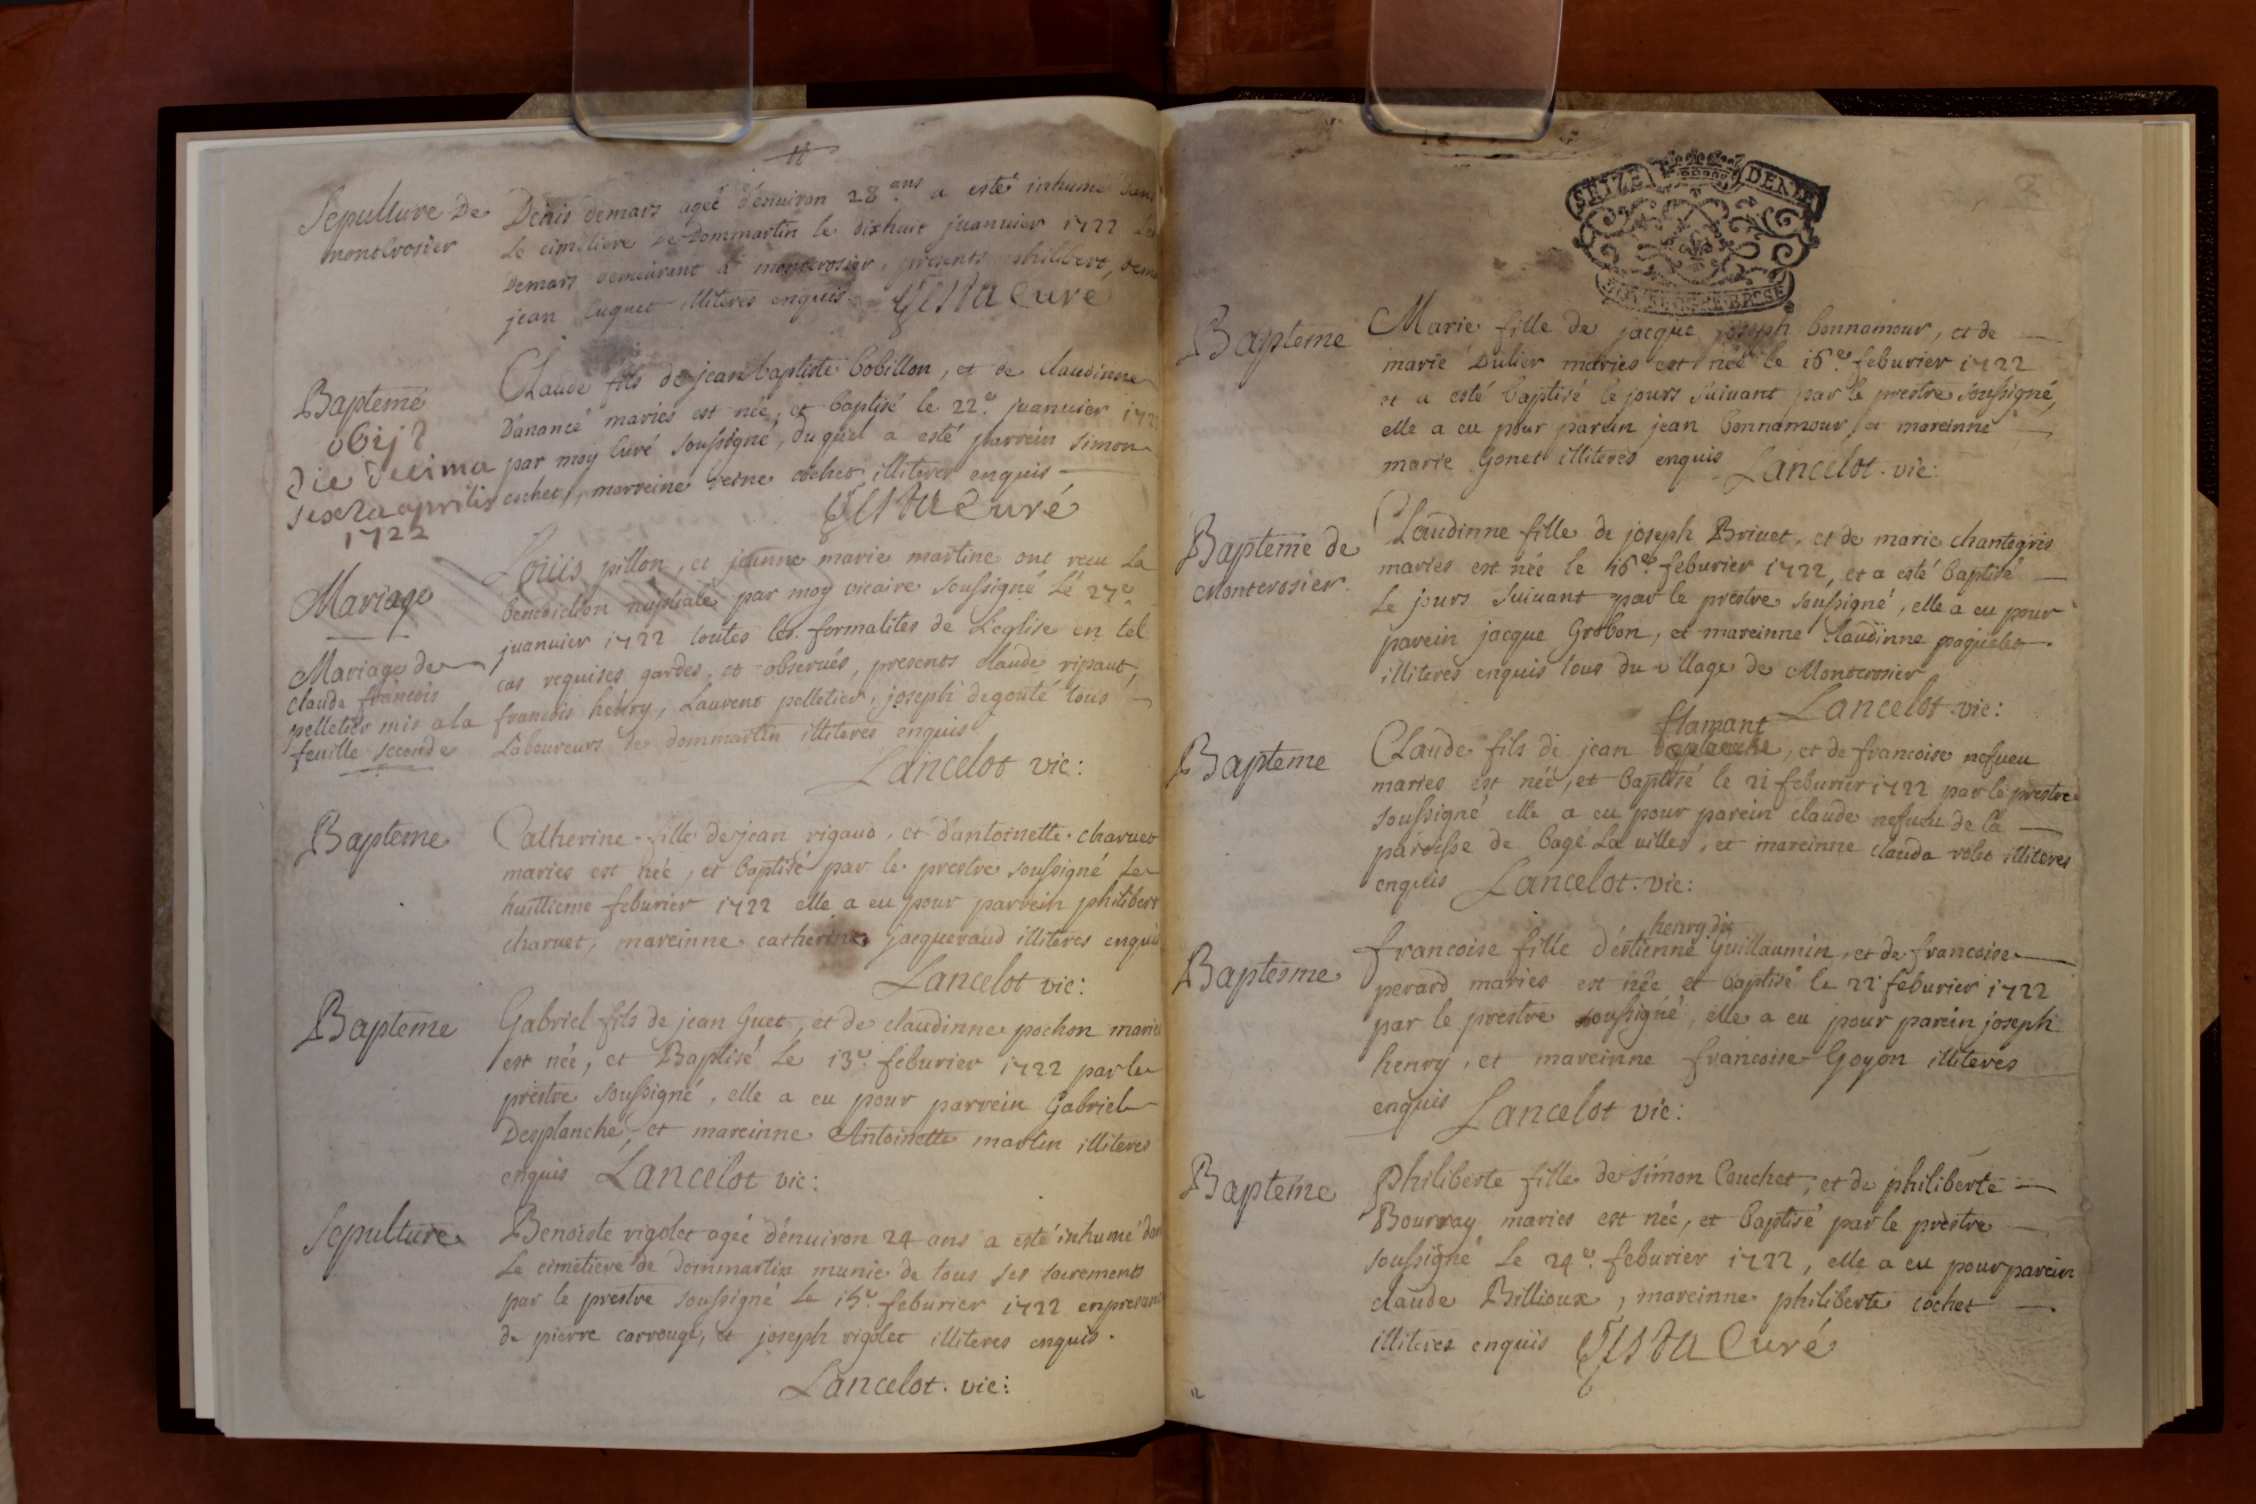 Sepulture De
montcrosier
Denis demars ageé d'enuiron 28 ans a esté inhumé dans
Le cimetiere de Dommartin le dixhuit juanuier 1722
Demars demeurant a montcrosier, presents philibert,
jean luquet illiteres enquis curé
Bapteme
obijt
die decima
sexta aprilis
1722
Claude fils de jean baptiste bobillon, et de claudinne
Dananće mariés est née, et baptisé le 22e juanuier 172
par moy Curé soussigné, du quel a esté parrein simon
cochet, marreine reine cochet illiteres enquis
Curé
Mariage
Loüis pillon, et jeanne marie martine ont receu La
benediction nuptiale par moy vicaire soussigné Lé 27e
juanuier 1722 toutes les formalites de L'eglise en tel
cas requises gardes, et observés, presents claude ripaut,
francois henry, Laurent pelletier, joseph degouté tous
Laboureurs de dommartin illiteres enquis
Lancelot vic:
Mariage de
claude francois
pelletier mis a la
feuille seconde
Bapteme
Catherine fille de jean rigaud, et d'antoinette charuet
maries est née, et baptisé par le prestre soussigné Le
huittieme feburier 1722 elle a eu pour parrein philibert
charuet, mareinne catherine jacqueraud illiteres enquis
Lancelot vic:
Bapteme
Gabriel fils de jean Guet, et de claudinne pochon maries
est née, et Baptisé Le 13e feburier 1722 par le
prestre soussigné, elle a eu pour parrein Gabriel
Desplanche, et mareinne Antoinette martin illiteres
enquis Lancelot vic:
Sepulture
Benoiste rigolet ageé d'enuiron 24 ans a esté inhumé dans
Le cimetiere de dommartin munie de tous ses sacrements
par le prestre soussigné Le 15e feburier 1722 en presance
de pierre carrouge, et joseph rigolet illiteres enquis.
Lancelot. vic:
SEIZE DENIE
Bapteme
Marie fille de jacque joseph bonnamour, et de
marie Dulier maries est née le 16e feburier 1722
et a esté baptisé le jours suiuant par le prestre soussigné,
elle a eu pour parein jean bonnamour, et mareinne
marie Gonet illiteres enquis Lancelot. vic:
Bapteme de
Montcrosier
Claudinne fille de joseph Briuet, et de marie chantegris
maries est née le 16e feburier 1722, et a esté baptisé
Le jours suiuant par le prestre soussigné, elle a eu pour
parein jacque Grobon, et mareinne claudinne paquelet
illiteres enquis tous du village de Montcrosier
Lancelot vic:
Bapteme
flamant
Claude fils de jean , et de francoise nefueu
maries est née, et baptisé le 21 feburier 1722 par le prestre
soussigné elle a eu pour parein claude nefueu de la
paroisse de bagé La ville, et mareinne clauda rolet illiteres
enquis Lancelot. vic:
Baptesme
henry dit
francoise fille d'estienne Guillaumin, et de francoise
perard maries est née et baptisé le 22 feburier 1722
par le prestre soussigné, elle a eu pour parein joseph
henry, et mareinne francoise Goyon illiteres
enquis Lancelot vic:
Bapteme
Philiberte fille de simon Couchet, et de philiberte
Bourray maries est née, et baptisé par le prestre
soussigné Le 24e feburier 1722, elle a eu pour parein
claude Billioux, mareinne philiberte cochet
illiteres enquis Curé